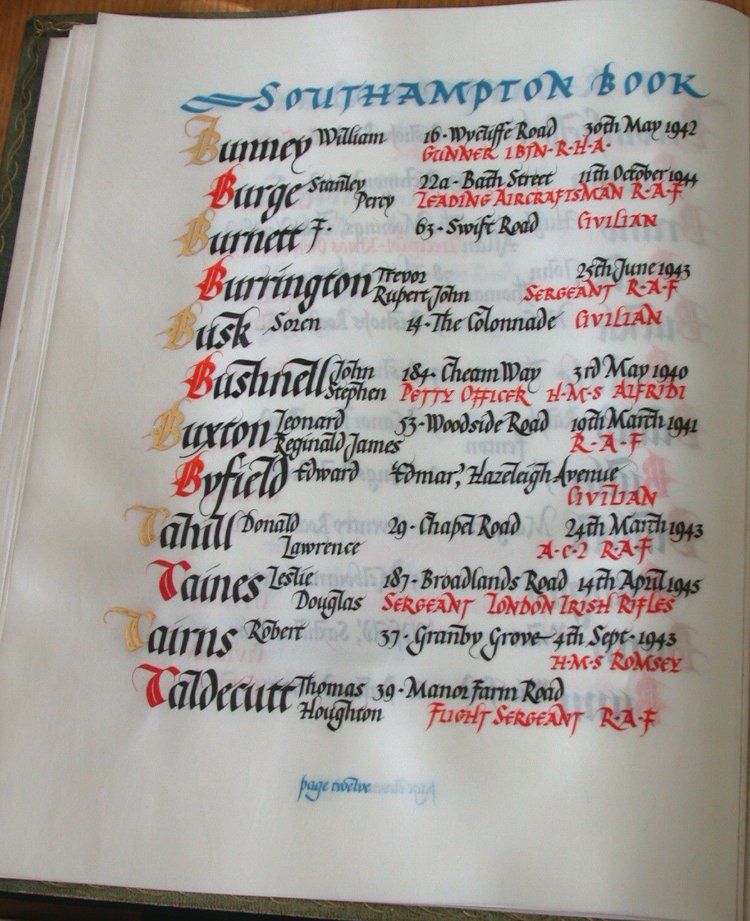 SOUTHAMPTON BOOK
Bunney William 16·Wycliffe Road 30th May 1942
GUNNER 1BTN·R·H·A·
Burge Stanley 22a·Bath Street 11th October 1944
Percy LEADING AIRCRAFTSMAN R·A·F
Burnett F· 63·Swift Road CIVILIAN
Burrington Trevor 25th June 1943
Rupert John SERGEANT R·A·F
Busk Soren 14·The Colonnade CIVILIAN
Bushnell John 184·Cheam Way 3rd May 1940
Stephen PETTY OFFICER H·M·S ALFRIDI
Buxton Leonard 53·Woodside Road 19th March 1941
Reginald James R·A·F
Byfield Edward 'Edmar', Hazeleigh Avenue
CIVILIAN
Cahill Donald 29·Chapel Road 24th March 1943
Lawrence A·C·2 R·A·F
Caines Leslie 187·Broadlands Road 14th April 1945
Douglas SERGEANT LONDON IRISH RIFLES
Cairns Robert 37·Granby Grove 4th Sept·1943
H·M·S ROMSEY
Caldecutt Thomas 39·Manor Farm Road
Houghton FLIGHT SERGEANT R·A·F
page twelve